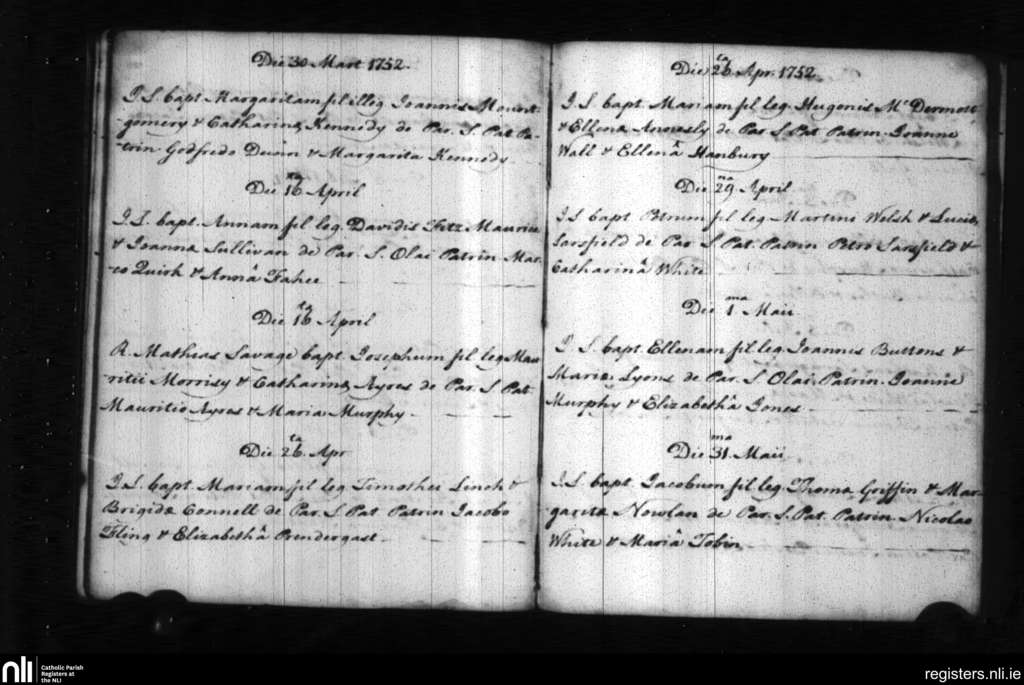 Die 30 Mart 1752.
I. S. bapt Margaritam fil illeg Joannis Mount-
gomery & Catharinæ Kennedy de Par. S. Pat Pa-
trin Godfredo Dunn & Margarita Kennedy
Die 16 April
I. S. bapt. Annam fil leg. Davidis Fitz Maurice
& Joannæ Sullivan de Par. S. Olai Patrin Mar-
co Quirk & Annâ Fahee
Die 16 ta April
R. Mathias Savage bapt Josephum fil leg Mau-
ritii Morrisy & Catharinæ Ayres de Par S Pat
Mauritio Ayres & Maria Murphy
Die 26 ta Apr
I. S. bapt. Mariam fil leg Timothei Linch &
Brigidæ Connell de Par. S. Pat Patrin Jacobo
Fling & Elizabethâ Prendergast
Die 26 ta Apr. 1752
I. S. bapt Mariam fil leg. Hugonis Mc Dermott
& Ellenæ Annesly de Par S Pat Patrin Joanne
Wall & Ellenâ Hanbury
Die 29 na April
I S bapt Petrum fil leg Martini Welsh & Luciæ
Sarsfield de Par S Pat. Patrin Petro Sarsfield &
Catharinâ White
Die 1 ma Maii
I. S. bapt. Ellenam fil leg Joannis Buttons &
Mariæ Lyons de Par. S. Olai. Patrin. Joanne
Murphy & Elizabethâ Jones
Die 31 ma Maii
I. S. bapt. Jacobum fil leg. Thomæ Griffin & Mar-
garitæ Nowlan de Par. S. Pat. Patrin. Nicolao
White & Mariâ Tobin
nli
Catholic Parish
Registers at
the NLI
registers.nli.ie